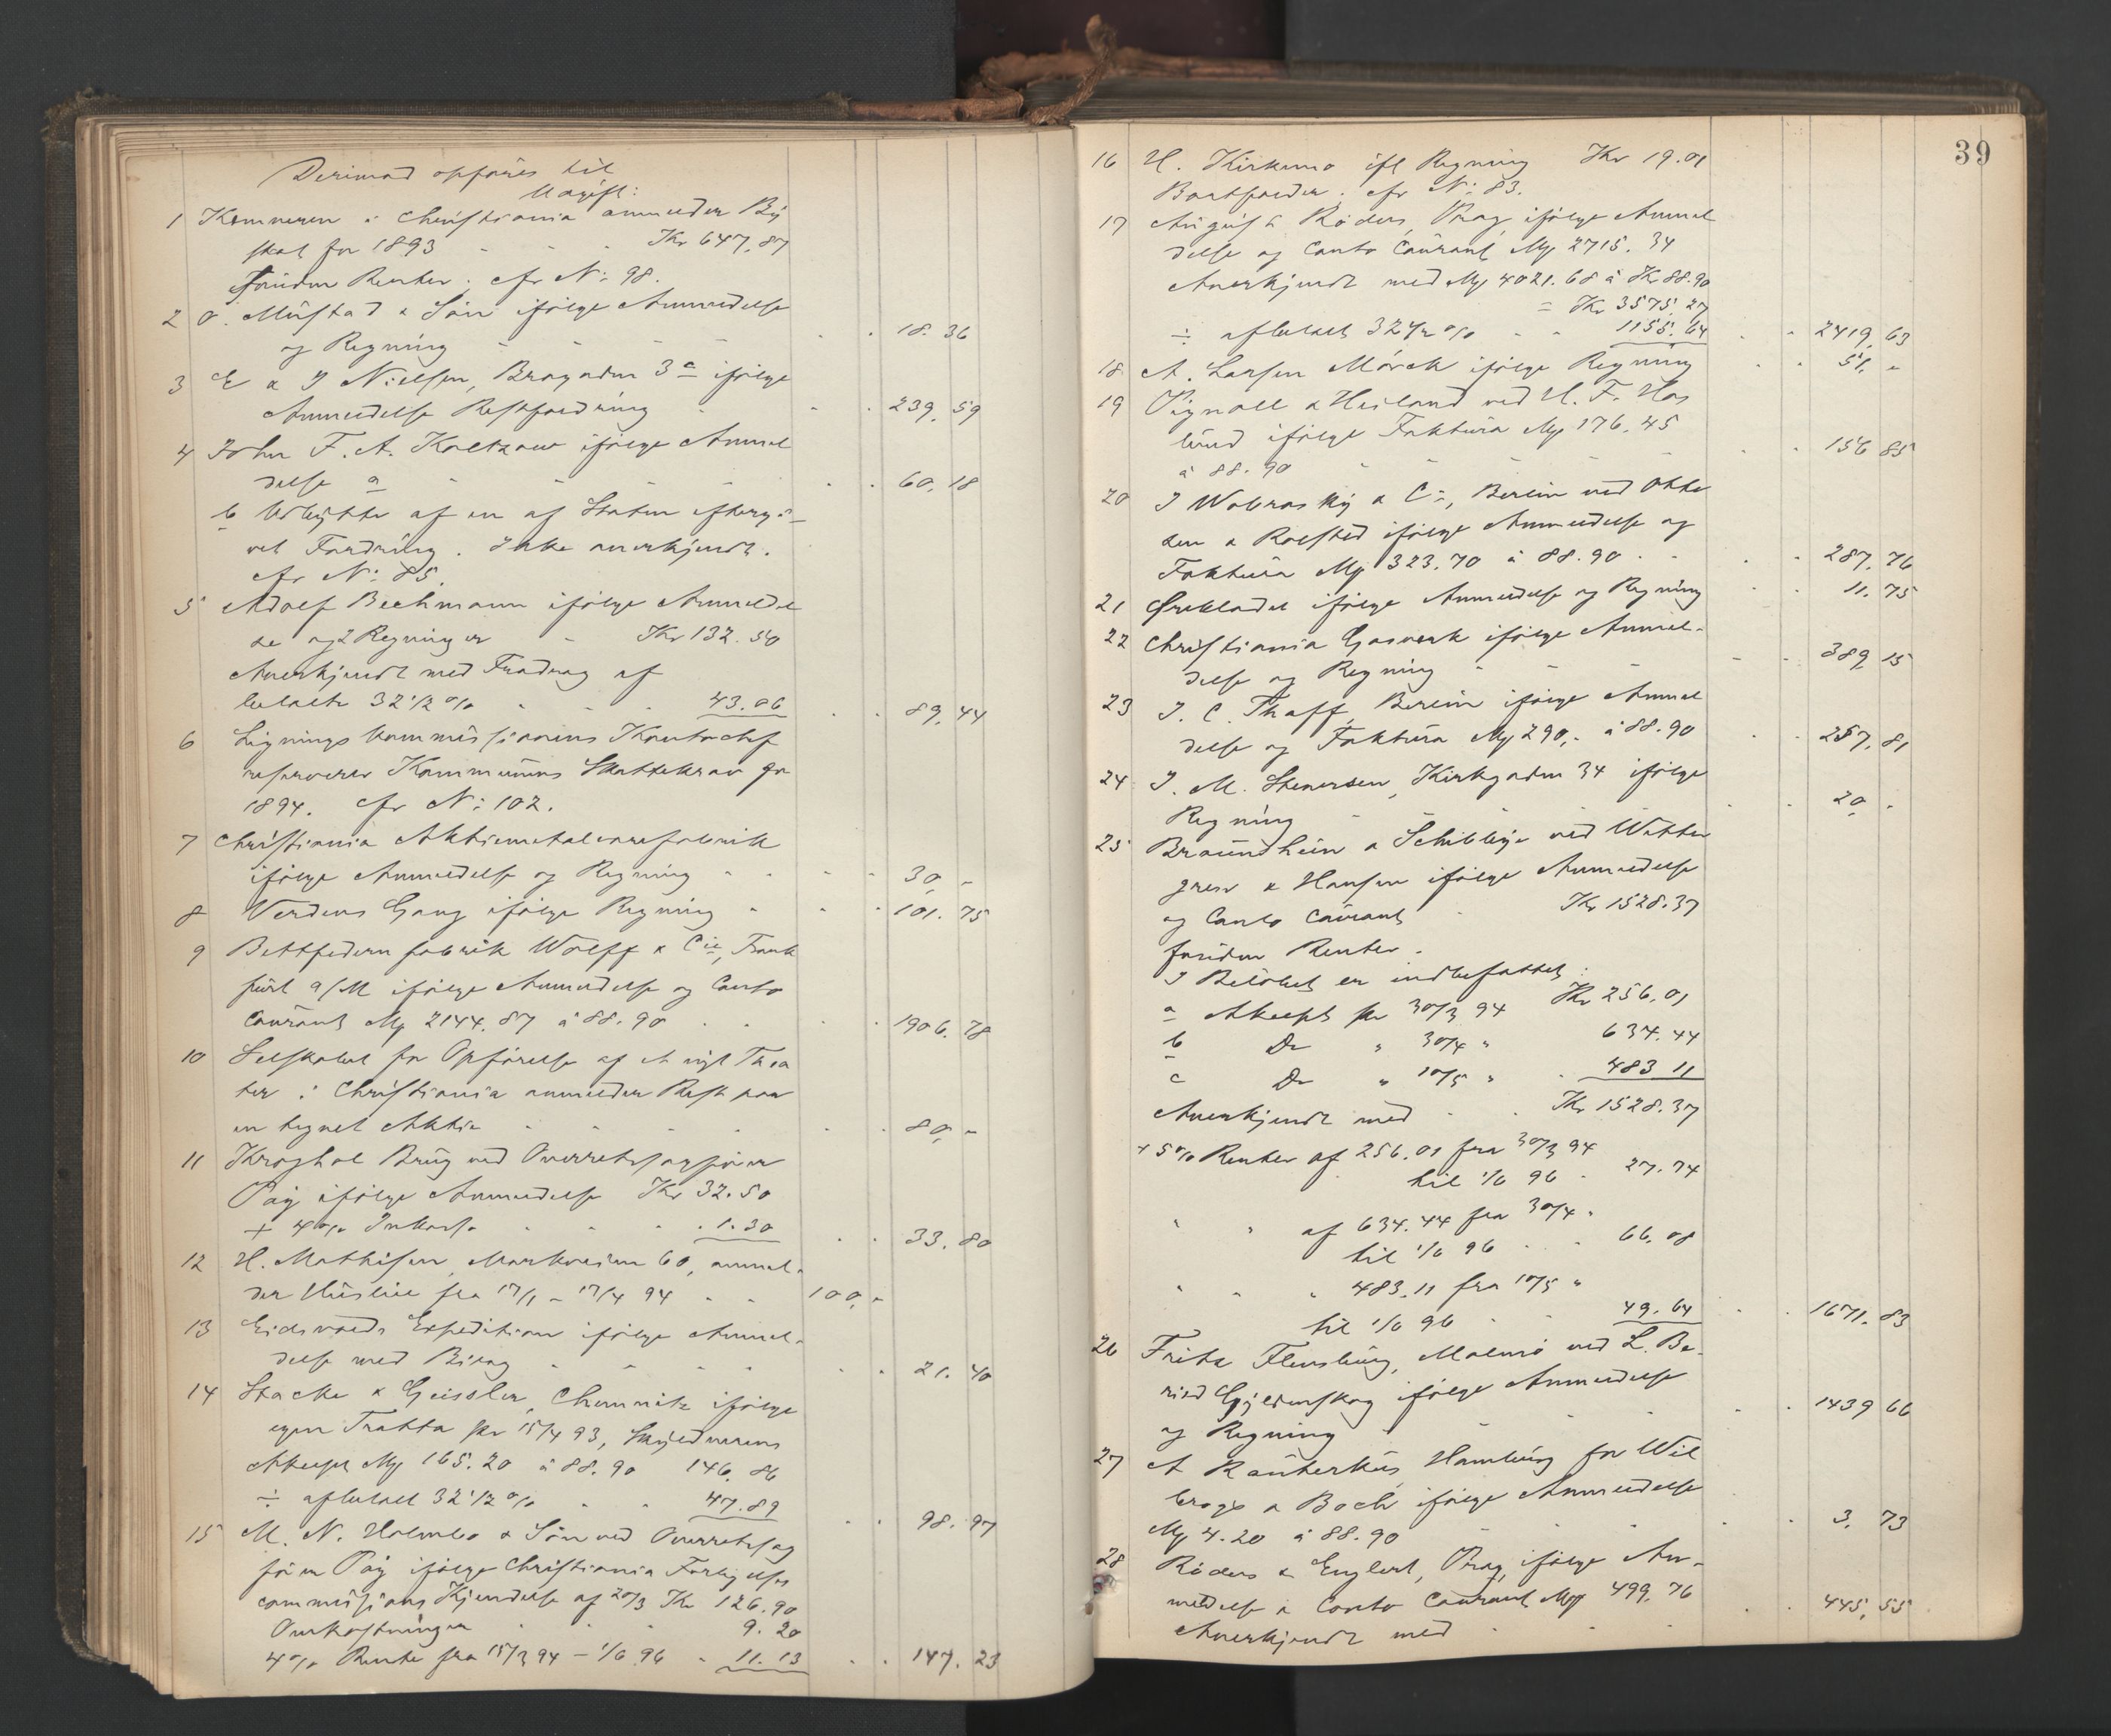 Derimod opføres til
Udgift:
1 Kemneren i Christiania anmelder By
skat for 1893 Kr 647.87
foruden Renter. cfr No 98.
2 O. Mustad & Søn ifølge Anmeldelse
og Regning 18.36
3 E & J Nielsen, Brogaden 3a ifølge
Anmeldelse Restfordring 239.59
4 John F. A. Koltzow ifølge Anmel
delse a 60.18
b Udbytte af en af Staten eftergi-
vet Fordring. Ikke anerkjendt.
cfr No 85.
5 Adolf Bechmann ifølge Anmeldel
se og 2 Regninger Kr 132.50
Anerkjendt med Fradrag af
betalte 32 1/2 % 43.06 89.44
6 Lignings kommissionens Kontorchef
reserverer Kommunens Skattekrav for
1894. cfr No 102.
7 Christiania Aktiemetalvarefabrik
ifølge Anmeldelse og Regning 30,-
8 Verdens Gang ifølge Regning 101.75
9 Bettfedern fabrik Wolff & Cie, Frank
furt a/M ifølge Anmeldelse og Conto
Courant Mp 2144.87 à 88.90 1906.78
10 Selskabet for Opførelse af et nyt Thea
ter i Christiania anmelder Rest paa
en tegnet Aktie 80,-
11 Kroghol Brug ved Overretssagfører
Pay ifølge Anmeldelse Kr 32.50
+ 4% Inkasso 1.30 33.80
12 H. Mathisen, Markveien 60, anmel-
der Husleie fra 17/1 - 17/4 94 100,-
13 Eidsvolds Expedition ifølge Anmel-
delse med Bilag 21.40
14 Stacke & Geissler, Chemnitz ifølge
egen Tratta pr 15/4 93, Skyldnerens
Akcept Mp 165.20 à 88.90 146.86
÷ afbetalt 32 1/2 % 47.89 98.97
15 M. N. Holmbo & Søn ved Overretssag
fører Pay ifølge Christiania Forligelses
commissions Kjendelse af 20/3 Kr 126.90
Omkostninger 9.20
4% Rente fra 15/3 94 - 1/6 96 11.13 147.23
39
16 H. Kirkemo ifl Regning Kr 19.01
Bortfalder. cfr No 83.
17 August Röders, Prag, ifølge Anmel
delse og Conto Courant Mp 2715.34
Anerkjendt med Mp 4021.68 à Kr 88.90
= Kr 3575.27
÷ afbetalt 32 1/2 % 1155.64 2419,63
18 A. Larsen Mörch ifølge Regning 51,-
19 Pignoll & Heiland ved H. F. Has
lund ifølge Faktura Mp 176.45
à 88.90 156 85
20 J Wobrasky & Co, Berlin ved Otte
sen & Rolfsted ifølge Anmeldelse og
Faktura Mp 323.70 à 88.90 287,76
21 Ørebladet ifølge Anmeldelse og Regning 11.75
22 Christiania Gasverk ifølge Anmel-
delse og Regning 389,15
23 J. C. Thaff, Berlin ifølge Anmel
delse og Faktura Mp 290,- à 88.90 257,81
24 J. M. Stenersen, Kirkgaden 34 ifølge
Regning 20,-
25 & ved Witter
& Hansen ifølge Anmeldelse
og Conto Courant Kr 1528.37
foruden Renter.
I Beløbet er indbefattet:
a Akcept pr 30/3 94 Kr 256.01
b Do " 30/4 " 634.44
c Do " 10/5 " 483 11
Anerkjendt med Kr 1528.37
+ 5% Renter af 256.01 fra 30/3 94
til 1/6 96 27.74
" " af 634.44 fra 30/4 "
til 1/6 96 66.08
" " " 483.11 fra 10/5 "
til 1/6 96 49.64 1671.83
26 Fritz Flensburg, Malmö ved L. Be-
ried Gyldenskog ifølge Anmeldelse
og Regning 1439 66
27 A Rauterkus, Hamburg for Wil
& Boch ifølge Anmeldelse
Mp 4.20 à 88.90 3.73
28 Röders & Englert, Prag, ifølge An-
meldelse & Conto Courant Mp 499.76
Anerkjendt med 445,55